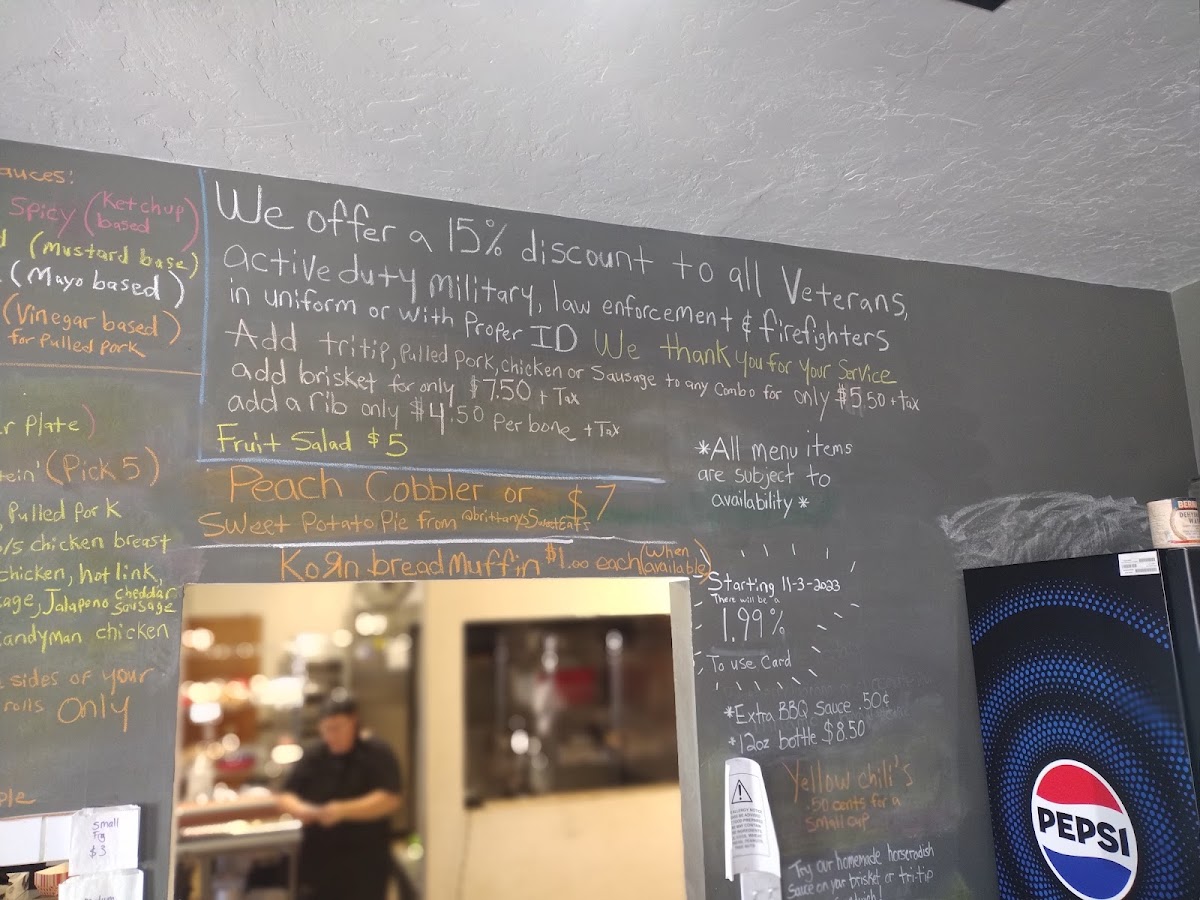 auces:
Spicy (Ketchup
based)
(Mustard base)
(Mayo based)
(Vinegar based)
for Pulled Pork
r Plate)
tein' (Pick 5)
, Pulled Pork
/s chicken breast
chicken, hot link,
age, Jalapeno cheddar
sausage
andyman chicken
sides of your
rolls only
ple
Small
Fry
$3
We offer a 15% discount to all Veterans,
active duty military, law enforcement & firefighters
in uniform or with Proper ID We thank you for your Service
Add tritip, pulled pork, chicken or Sausage to any Combo for only $5.50 + tax
add brisket for only $7.50 + Tax
add a rib only $4.50 Per bone + Tax
Fruit Salad $5
Peach Cobbler or $7
Sweet Potato Pie from @brittanysSweetEats
KoЯn bread Muffin $1.00 each (When
available)
*All menu items
are subject to
availability *
Starting 11-3-2023
There will be a
1.99%
To use Card
*Extra BBQ Sauce .50¢
*12oz bottle $8.50
Yellow chili's
.50 cents for a
Small cup
Try our homemade horseradish
Sauce on your brisket or tri-tip
PEPSI